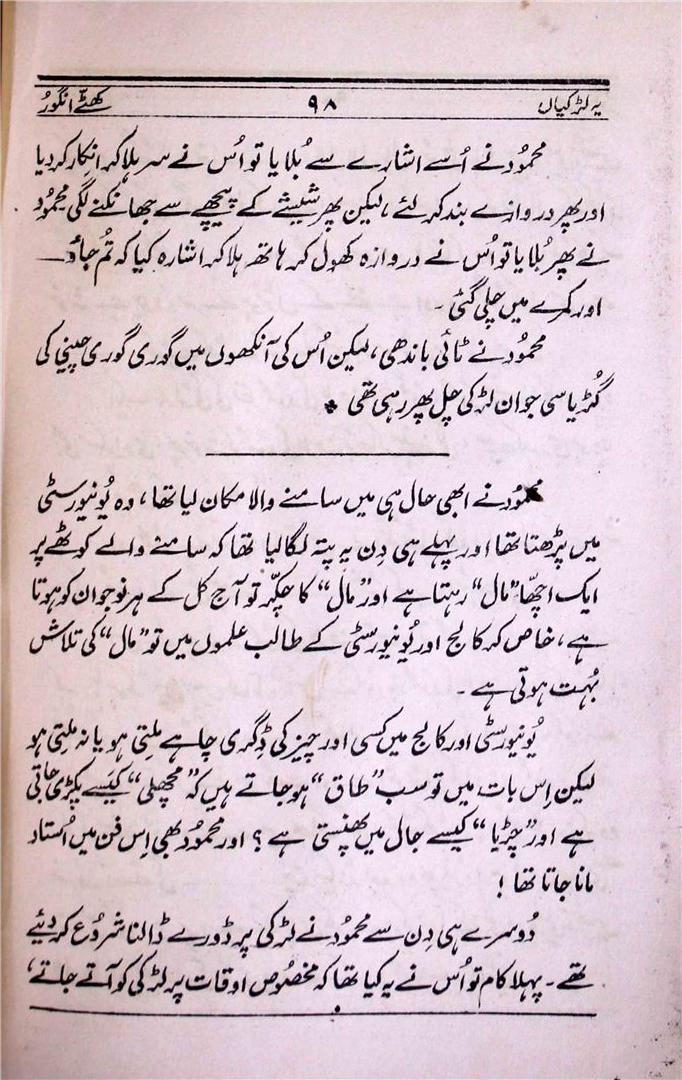 یہ لڑکیاں ۹۸ کھٹّے انگور
محمُود نے اُسے اشارے سے بُلایا تو اُس نے سر ہلا کر انکار کر دیا
اور پھر دروازے بند کر لئے، لیکن پھر شیشے کے پیچھے سے جھانکنے لگی محمُود
نے پھر بُلایا تو اُس نے دروازہ کھول کر ہاتھ ہلا کر اشارہ کیا کہ تُم جاؤ—
اور کمرے میں چلی گئی۔
محمُود نے ٹائی باندھی، لیکن اُس کی آنکھوں میں گوری گوری چینی کی
گُڑیا سی جوان لڑکی چل پھر رہی تھی *
محمُود نے ابھی حال ہی میں سامنے والا مکان لیا تھا، وہ یُونیورسٹی
میں پڑھتا تھا اور پہلے ہی دِن یہ پتہ لگا لیا تھا کہ سامنے والے کوٹھے پر
ایک اچھّا ”مال“ رہتا ہے اور ”مال“ کا چکّر تو آج کل کے ہر نوجوان کو ہوتا
ہے، خاص کر کالج اور یُونیورسٹی کے طالب علموں میں تو ”مال“ کی تلاش
بُہت ہوتی ہے۔
یُونیورسٹی اور کالج میں کسی اور چیز کی ڈِگری چاہے مِلتی ہو یا نہ مِلتی ہو
لیکن اِس بات میں تو سب ”طاق“ ہو جاتے ہیں کہ ”مچھلی“ کیسے پکڑی جاتی
ہے اور ”چڑیا“ کیسے جال میں پھنستی ہے؟ اور محمُود بھی اِس فن میں اُستاد
مانا جاتا تھا!
دُوسرے ہی دِن سے محمُود نے لڑکی پر ڈورے ڈالنا شرُوع کر دیئے
تھے۔ پہلا کام تو اُس نے یہ کیا تھا کہ مخصُوص اوقات پر لڑکی کو آتے جاتے،